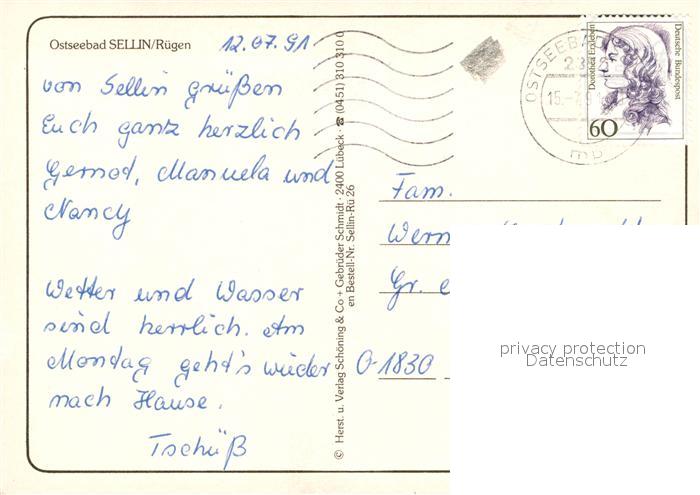 Ostseebad SELLIN/Rügen
12.07.91
von Sellin grüßen
Euch ganz herzlich
Gernot, Manuela und
Nancy
Wetter und Wasser
sind herrlich. Am
Montag geht's wieder
nach Hause.
Tschüß
© Herst. u. Verlag Schöning & Co + Gebrüder Schmidt · 2400 Lübeck · ☎ (0451) 310 310 0
en Bestell-Nr. Sellin-Rü 26
OSTSEEBAD
15.-7.9
mb
Dorothea Erxleben
Deutsche Bundespost
60
Fam.
Wern
Gr.
O-1830
privacy protection
Datenschutz